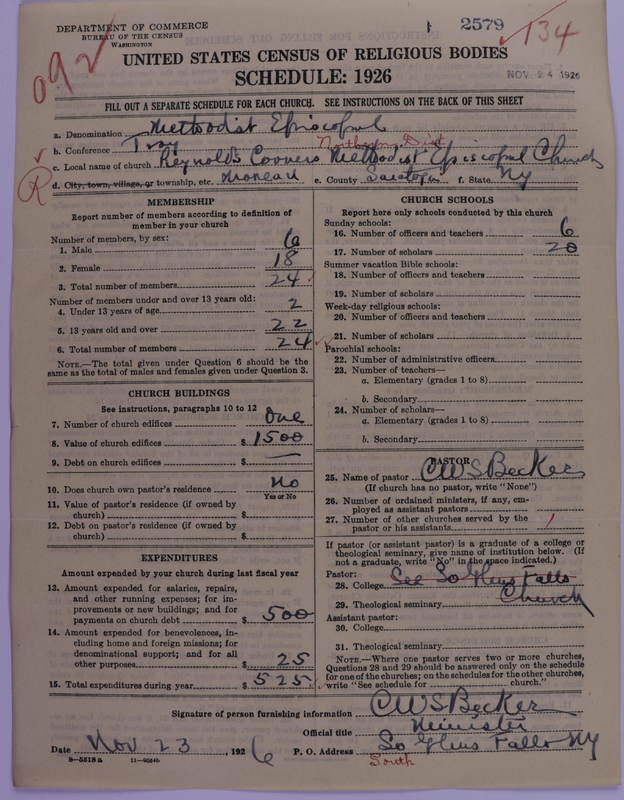 DEPARTMENT OF COMMERCE
BUREAU OF THE CENSUS
WASHINGTON
2579
134
092
UNITED STATES CENSUS OF RELIGIOUS BODIES
SCHEDULE: 1926
NOV 24 1926
FILL OUT A SEPARATE SCHEDULE FOR EACH CHURCH. SEE INSTRUCTIONS ON THE BACK OF THIS SHEET
a. Denomination Methodist Episcopal
b. Conference Troy Northern Dist
c. Local name of church Reynolds Corners Methodist Episcopal Church
R
d. City, town, village, or township, etc. Moreau e. County Saratoga f. State NY
MEMBERSHIP
Report number of members according to definition of member in your church
Number of members, by sex:
1. Male 6
2. Female 18
3. Total number of members 24
Number of members under and over 13 years old:
4. Under 13 years of age 2
5. 13 years old and over 22
6. Total number of members 24
NOTE.—The total given under Question 6 should be the same as the total of males and females given under Question 3.
CHURCH BUILDINGS
See instructions, paragraphs 10 to 12
7. Number of church edifices One
8. Value of church edifices $ 1500
9. Debt on church edifices $ —
10. Does church own pastor's residence No
Yes or No
11. Value of pastor's residence (if owned by church) $
12. Debt on pastor's residence (if owned by church) $
EXPENDITURES
Amount expended by your church during last fiscal year
13. Amount expended for salaries, repairs, and other running expenses; for improvements or new buildings; and for payments on church debt $ 500
14. Amount expended for benevolences, including home and foreign missions; for denominational support; and for all other purposes $ 25
15. Total expenditures during year $ 525
CHURCH SCHOOLS
Report here only schools conducted by this church
Sunday schools:
16. Number of officers and teachers 6
17. Number of scholars 20
Summer vacation Bible schools:
18. Number of officers and teachers
19. Number of scholars
Week-day religious schools:
20. Number of officers and teachers
21. Number of scholars
Parochial schools:
22. Number of administrative officers
23. Number of teachers—
a. Elementary (grades 1 to 8)
b. Secondary
24. Number of scholars—
a. Elementary (grades 1 to 8)
b. Secondary
PASTOR
25. Name of pastor CWS Becker
(If church has no pastor, write "None")
26. Number of ordained ministers, if any, employed as assistant pastors
27. Number of other churches served by the pastor or his assistants 1
If pastor (or assistant pastor) is a graduate of a college or theological seminary, give name of institution below. (If not a graduate, write "No" in the space indicated.)
Pastor:
28. College See So Glens Falls
29. Theological seminary Church
Assistant pastor:
30. College
31. Theological seminary
NOTE.—Where one pastor serves two or more churches, Questions 28 and 29 should be answered only on the schedule for one of the churches; on the schedules for the other churches, write "See schedule for ______ church."
Signature of person furnishing information CWS Becker
Official title Minister
Date Nov 23, 1926 P. O. Address So Glens Falls NY
South
8—5518 a 11—9064b